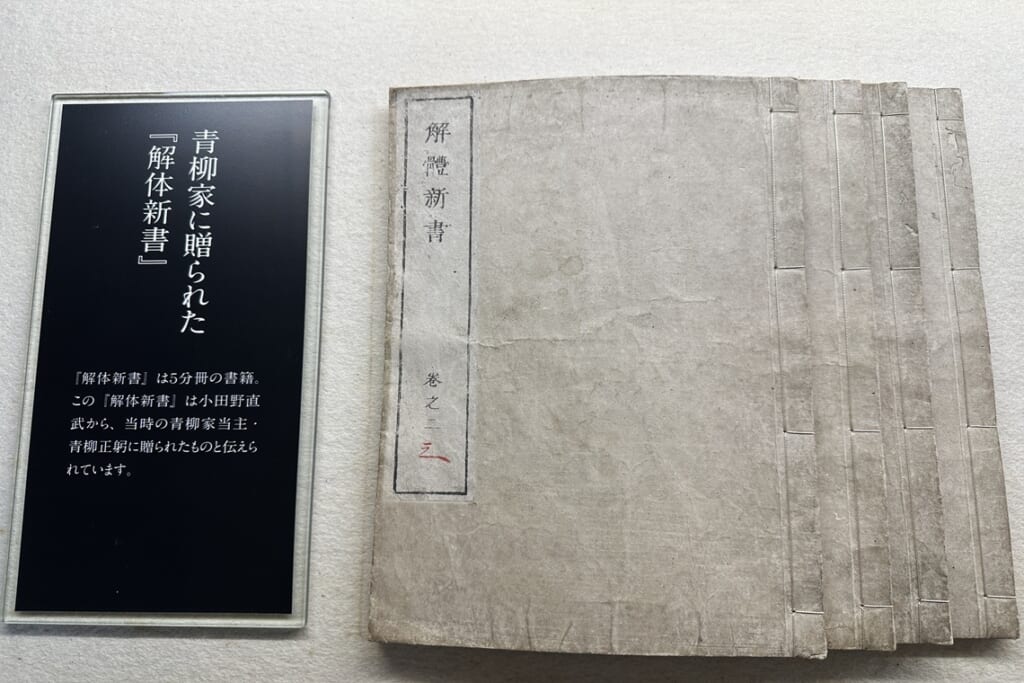 青柳家に贈られた
『解体新書』
『解体新書』は5分冊の書籍。
この『解体新書』は小田野直
武から、当時の青柳家当主・
青柳正躬に贈られたものと伝えら
れています。
解體新書
卷之二
三